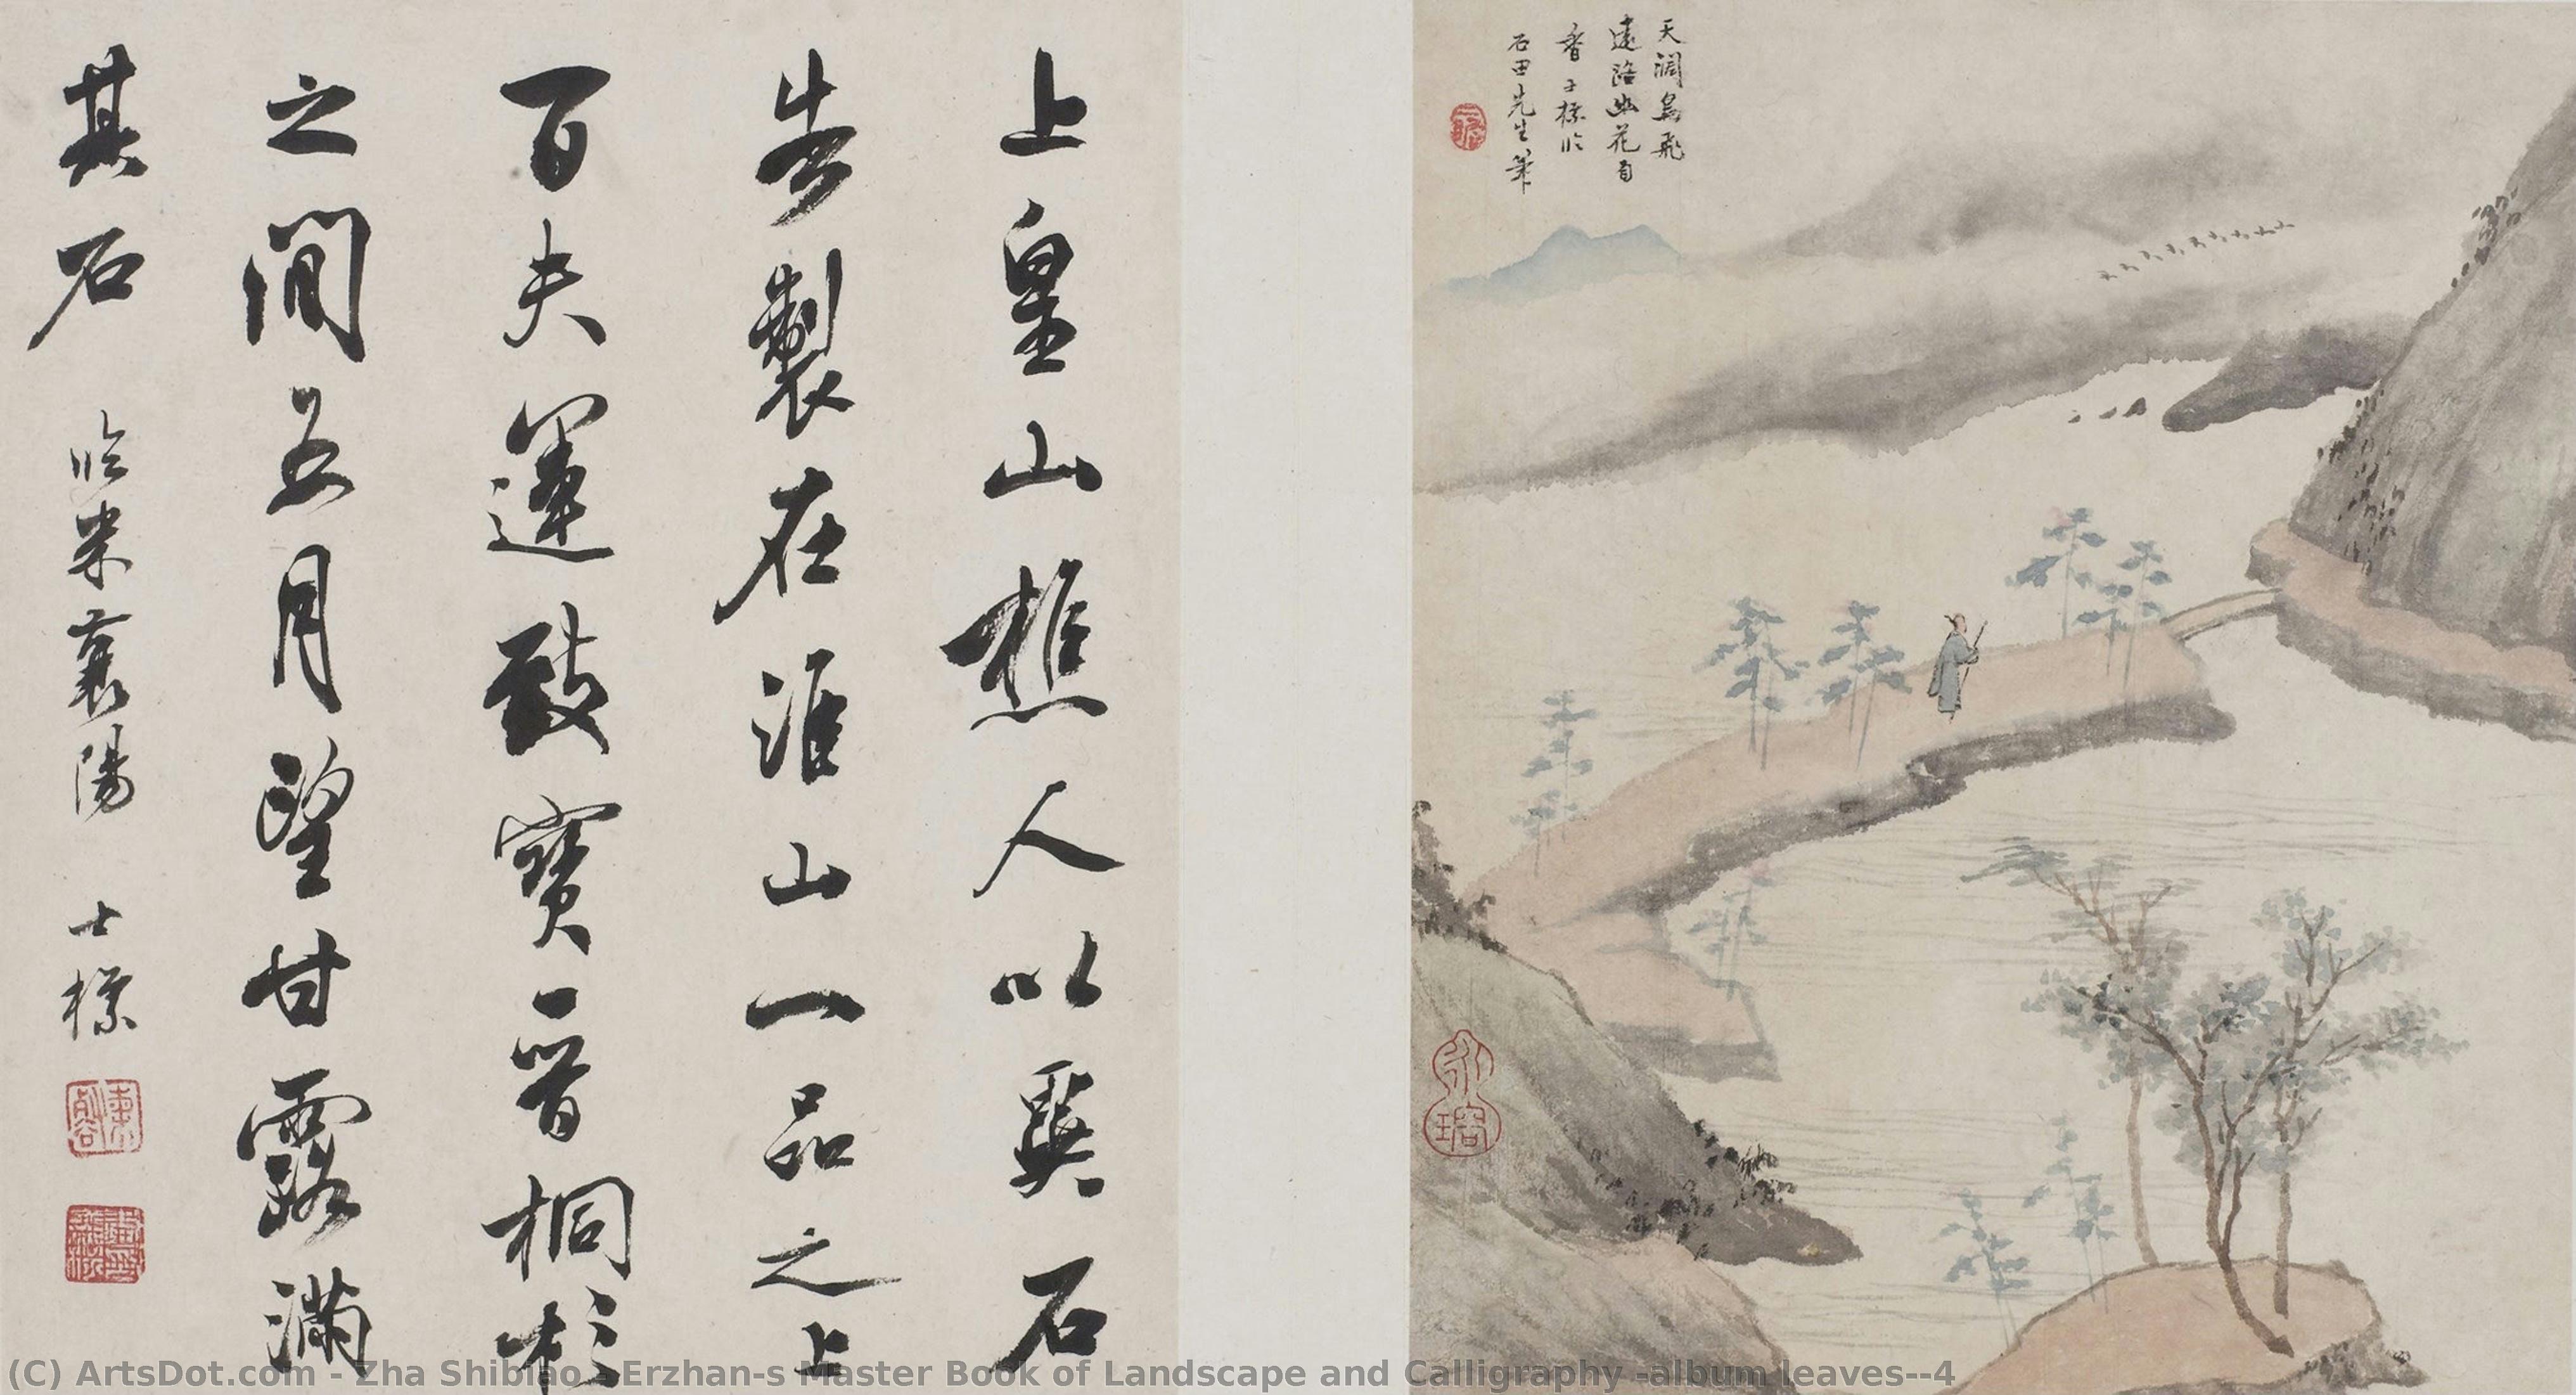 天濶鳥飛
遠路幽花自
香士標临
石田先生筆
上皇山樵人以異石
告製在淮山一品之上
百夫運致寶晉桐杉
之間五月望甘露滿
其石
临米襄陽
士標
(C) ArtsDot.com - Zha Shibiao - Erzhan-s Master Book of Landscape and Calligraphy -album leaves--4